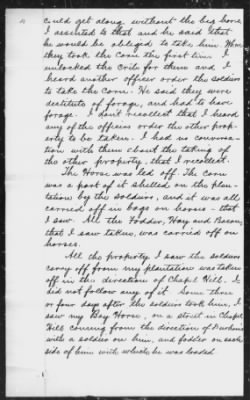 could get along without the bay horse
I assented to that and he said that
he would be obliged to take him. When
they took the corn the first time I
unlocked the Crib for them and I
heard another officer order the soldiers
to take the Corn. He said they were
destitute of forage, and had to have
forage. I don't recollect that I heard
any of the officers order the other prop-
erty to be taken. I had no conversa-
tion with them about the taking of
the other property, that I recollect.
The Horse was led off. The corn
was a part of it shelled on the plan-
tation by the soldiers, and it was all
carried off in bags on horses - that
I saw. All the Fodder, Hay and Bacon,
that I saw taken, was carried off on
horses.
All the property I saw the soldiers
carry off from my plantation was taken
off in the direction of Chapel Hill. I
did not follow any of it. Some three
or four days after the soldiers took him, I
saw my Bay Horse, on a street in Chapel
Hill coming from the direction of Durham's
with a soldier on him, and fodder on each
side of him with which he was loaded.